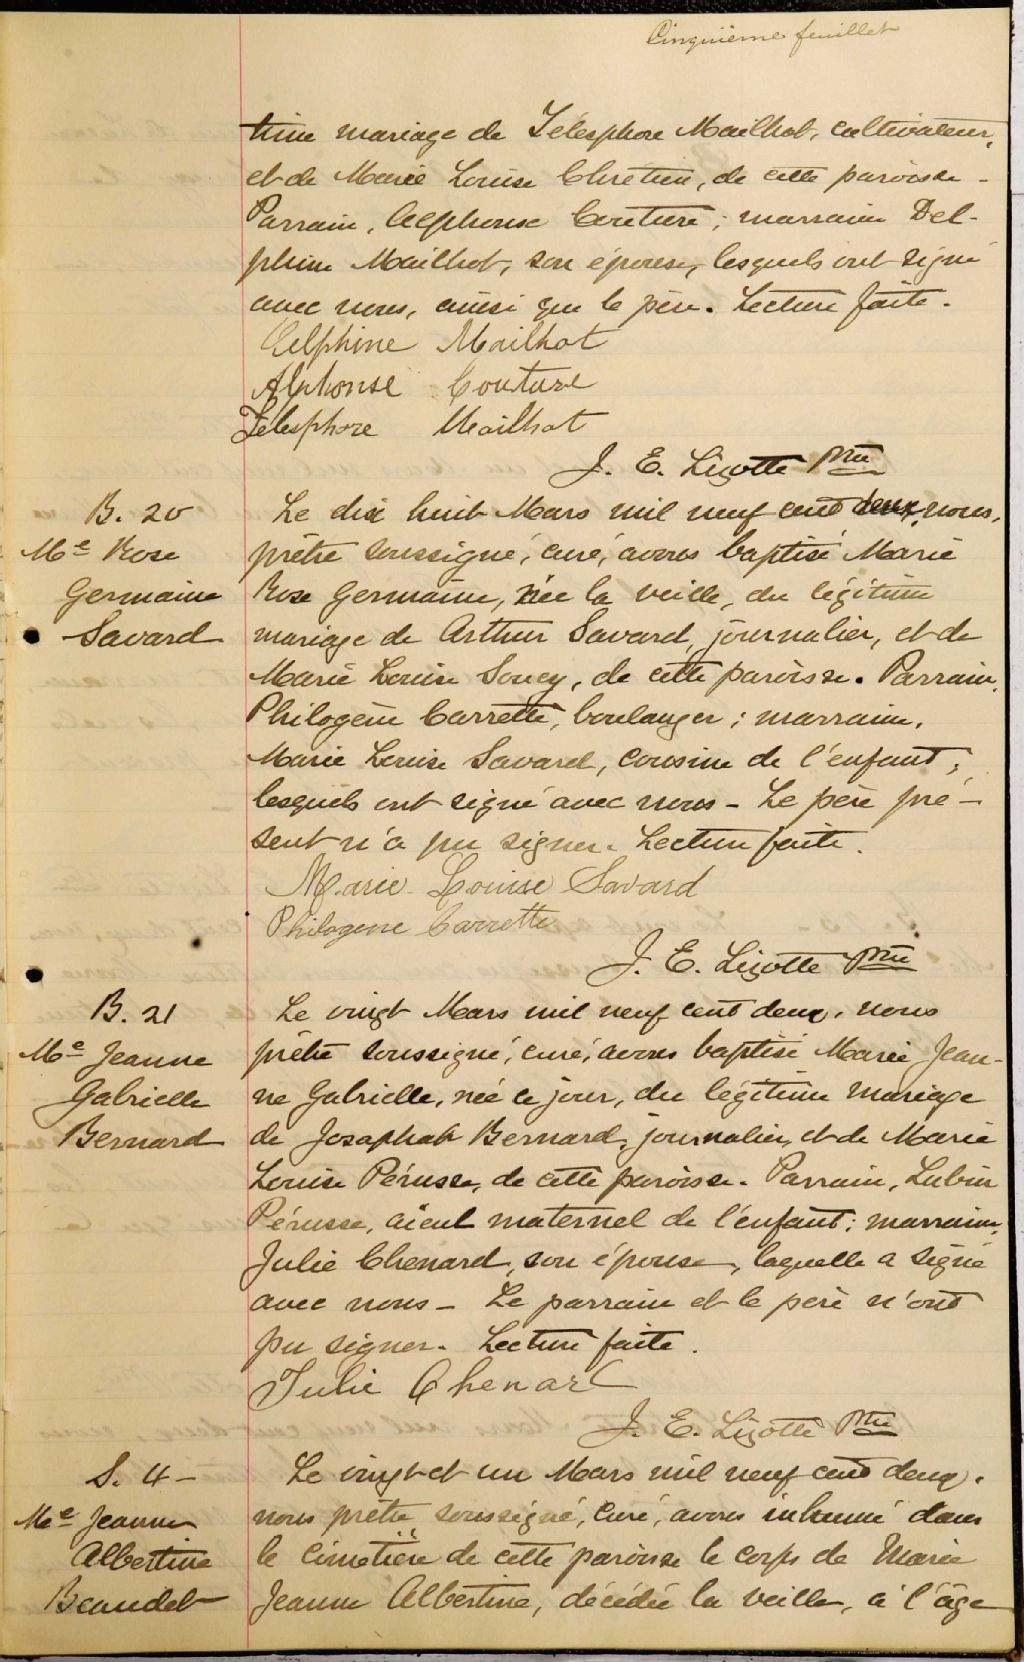 Cinquième feuillet
time mariage de Télesphore Mailhot, cultivateur,
et de Marie Louise Chrétien, de cette paroisse -
Parrain, Alphonse Couture ; marraine Del-
phine Mailhot, son épouse, lesquels ont signé
avec nous, ainsi que le père. Lecture faite.
Delphine Mailhot
Alphonse Couture
Télesphore Mailhot
J. E. Lizotte Ptre
B. 20
Me Rose
Germaine
Savard
Le dix huit Mars mil neuf cent deux, nous,
prêtre soussigné, curé, avons baptisé Marie
Rose Germaine, née la veille, du légitime
mariage de Arthur Savard, journalier, et de
Marie Louise Soucy, de cette paroisse. Parrain,
Philogène Carrette, boulanger ; marraine,
Marie Louise Savard, cousine de l'enfant ;
lesquels ont signé avec nous - Le père pré-
sent n'a pu signer. Lecture faite.
Marie Louise Savard
Philogene Carrette
J. E. Lizotte Ptre
B. 21
Me Jeanne
Gabrielle
Bernard
Le vingt Mars mil neuf cent deux, nous
prêtre soussigné, curé, avons baptisé Marie Jean-
ne Gabrielle, née ce jour, du légitime mariage
de Josaphat Bernard, journalier, et de Marie
Louise Pérusse, de cette paroisse. Parrain, Lubin
Pérusse, aieul maternel de l'enfant ; marraine,
Julie Chenard, son épouse, laquelle a signé
avec nous - Le parrain et le père n'ont
pu signer. Lecture faite.
Julie Chenard
J. E. Lizotte Ptre
S. 4 -
Me Jeanne
Albertine
Beaudet
Le vingt et un Mars mil neuf cent deux,
nous prêtre soussigné, curé, avons inhumé dans
le cimetière de cette paroisse le corps de Marie
Jeanne Albertine, décédée la veille, à l'âge